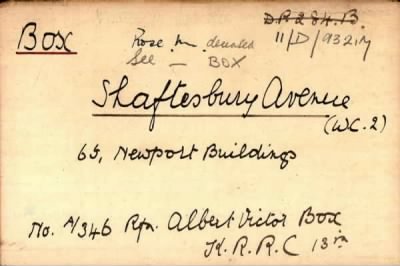 D.R. 284.B.
BOX Rose M deceased 11/D/932
See — BOX
Shaftesbury Avenue
(W.C.2)
65, Newport Buildings
No. A/346 Rfn. Albert Victor Box
K.R.R.C 13